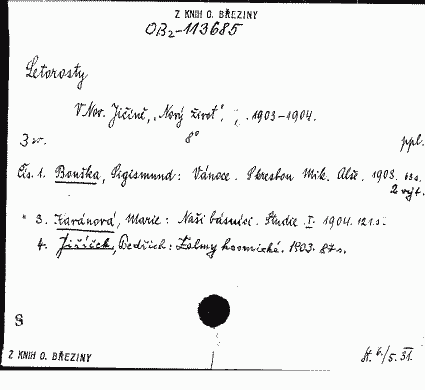 Z KNIH O. BŘEZINY
OB2-113685
Letorosty
V Nov. Jičíně, „Nový život", 1903-1904.
3 sv. 8° ppl.
Čís. 1. Bouška, Sigismund: Vánoce. S kresbou Mik. Alše. 1903. 63 s.
2 výt.
" 3. Kavánová, Marie: Naši básníci. Studie. I. 1904. 121 s.
4. Jiříček, Bedřich: Žalmy kosmické. 1903. 87 s.
S
Z KNIH O. BŘEZINY
5. 31.